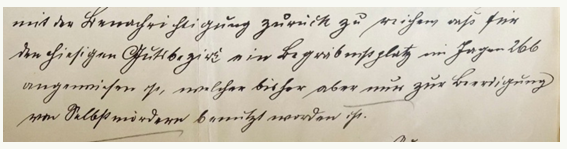 mit der Benachrichtigung zurück zu reichen daß für
den hiesigen Gutsbezirk ein Begräbnißplatz im Jagen 266
angewiesen ist, welcher bisher aber nur zur Beerdigung
von Selbstmördern benutzt worden ist.